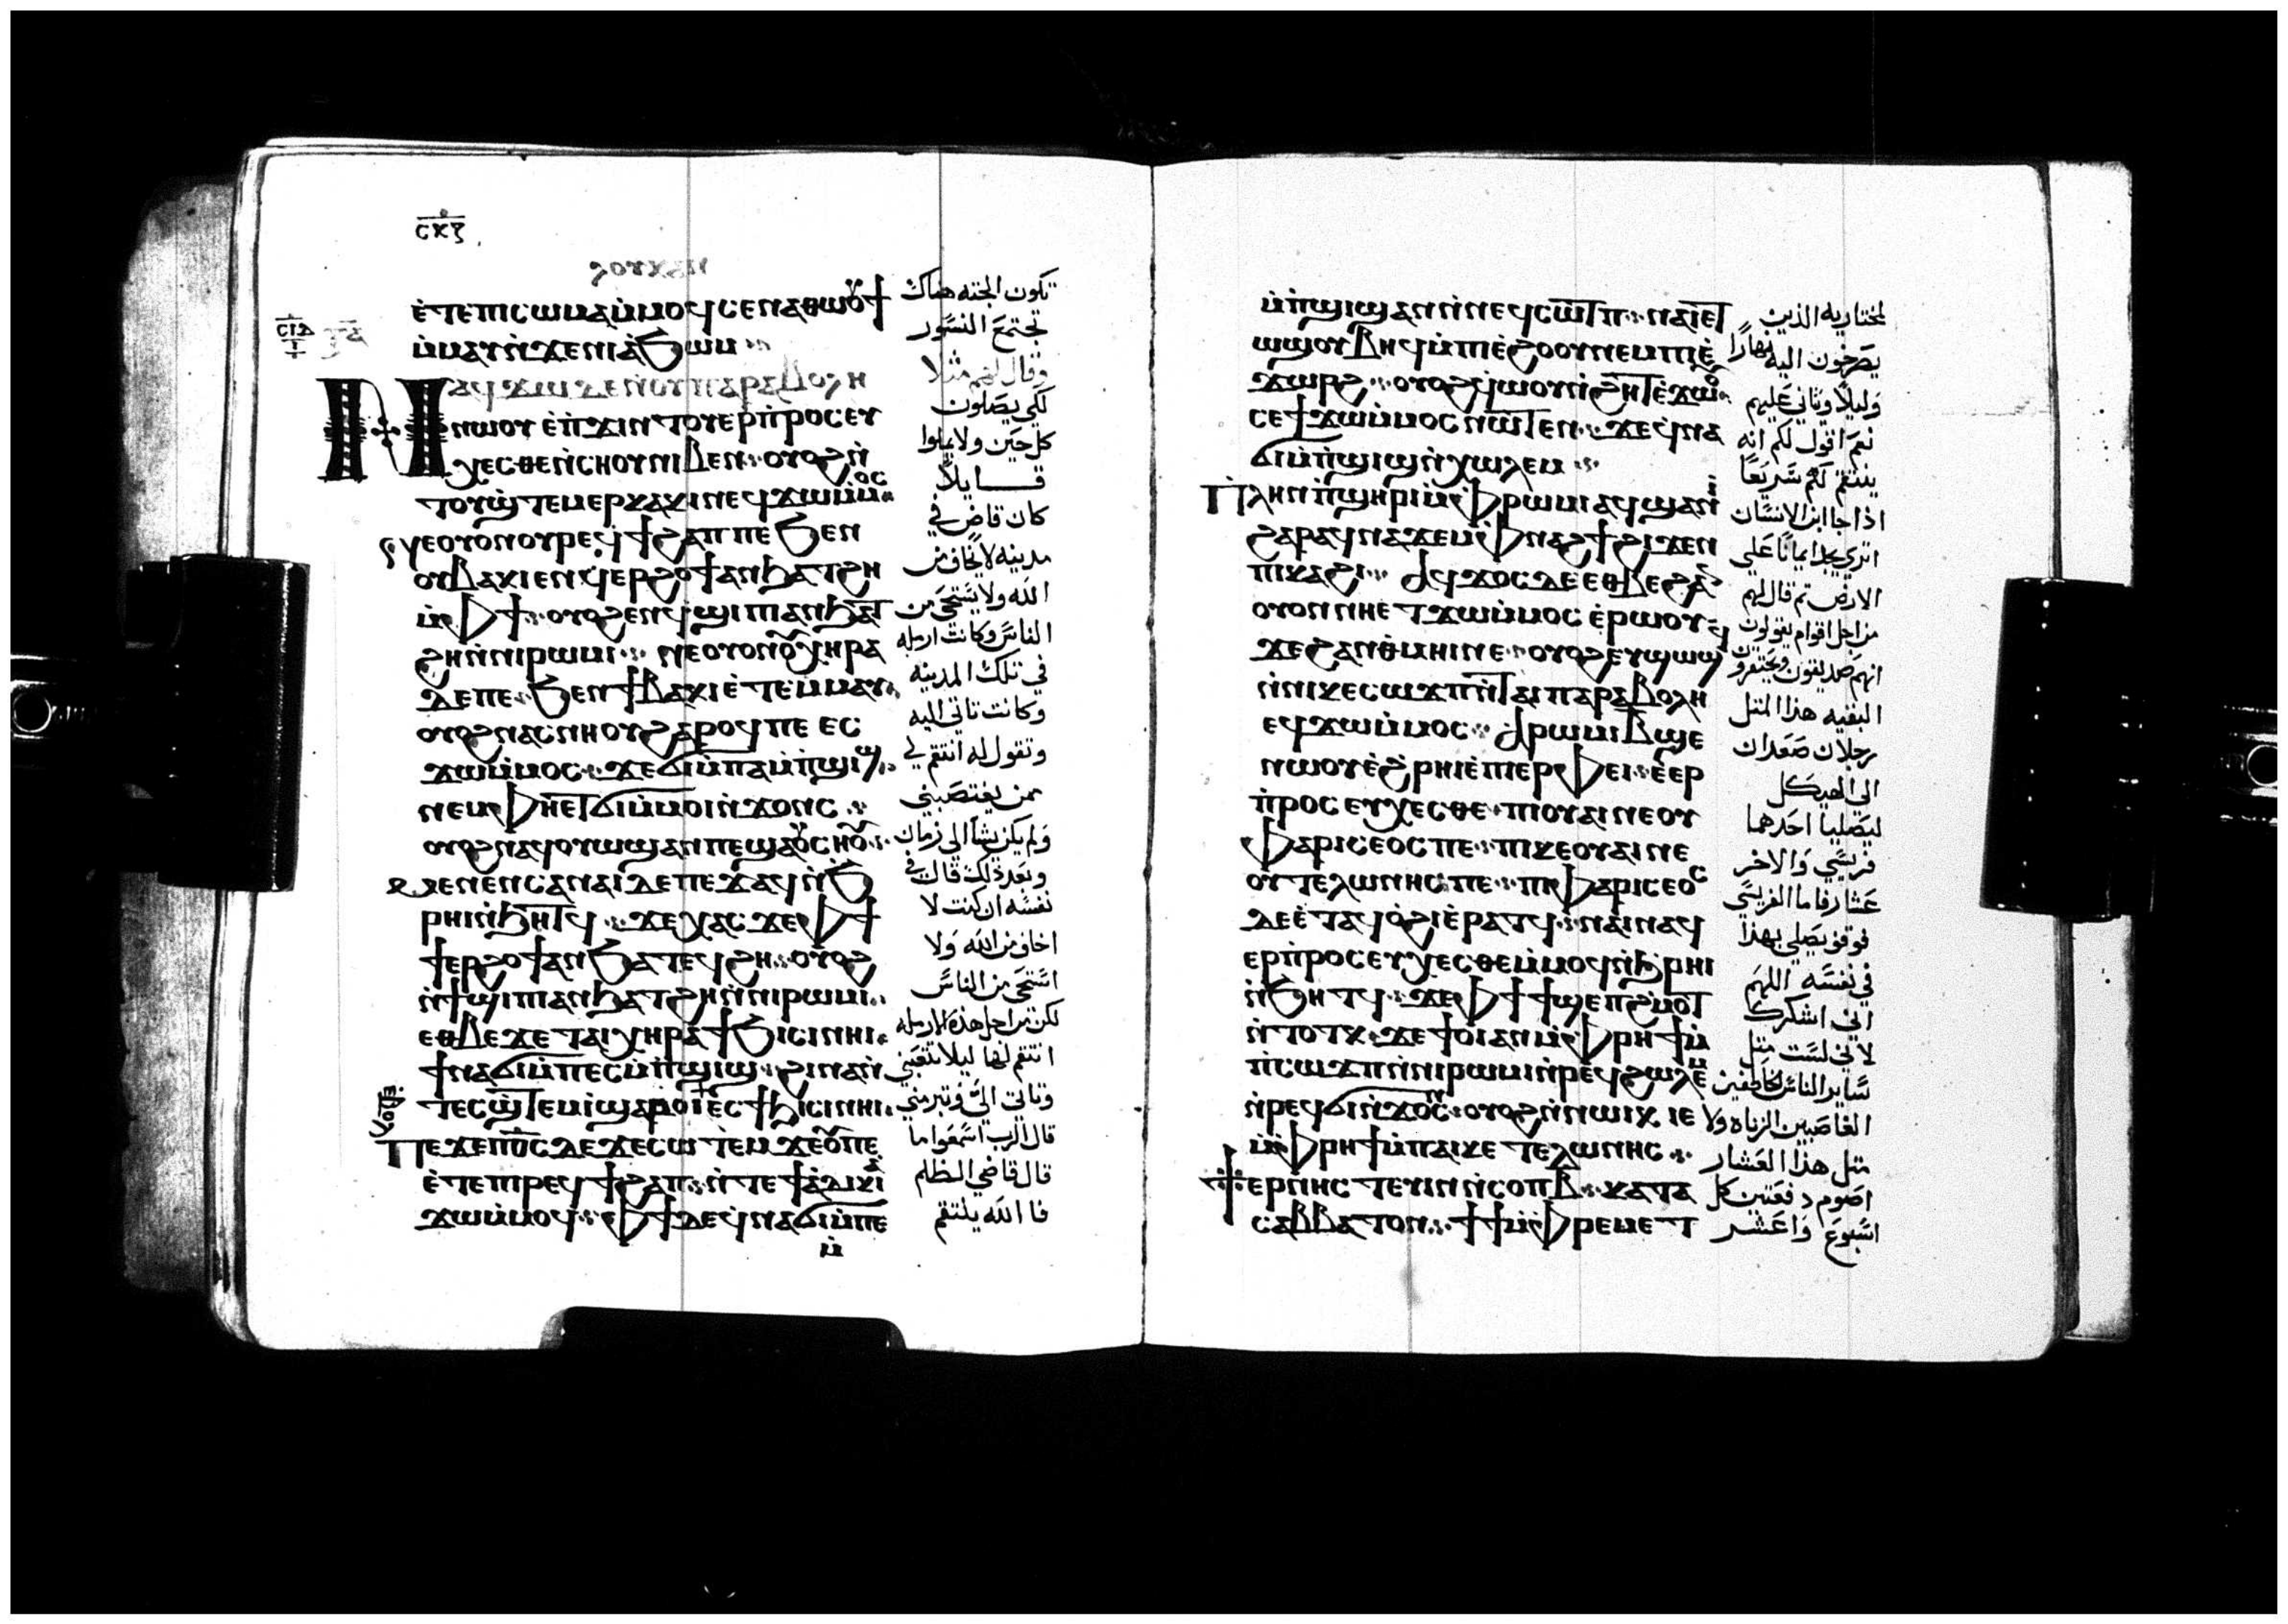 ⲥⲕⲍ
ⲗⲟⲩⲕⲁⲛ
ⲉ̇ⲧⲉⲡⲓⲥⲱⲙⲁⲙ̇ⲙⲟϥⲥⲉⲛⲁⲑⲱⲟⲩϯ
ⲙ̇ⲙⲁⲩⲛ̇ϫⲉⲛⲓⲁ̇ϧⲱⲙ
ⲛⲁϥϫⲱⲇⲉⲛ̇ⲟⲩⲡⲁⲣⲁⲃⲟⲗⲏ
ⲛⲱⲟⲩ ⲉ̇ⲡ̇ϫⲓⲛⲧⲟⲩⲉⲣⲡ̇ⲣⲟⲥⲉⲩ
ⲭⲉⲥⲑⲉⲛ̇ⲥⲏⲟⲩⲛⲓⲃⲉⲛ ⲟⲩⲟϩⲛ̇
ⲧⲟⲩϣ̇ⲧⲉⲙⲉⲣⲕⲁⲕⲓⲛⲉϥϫⲱⲙ̇ⲙⲟⲥ
ϫⲉⲟⲩⲟⲛⲟⲩⲣⲉϥϯϩⲁⲡⲡⲉ ϧⲉⲛ
ⲟⲩⲃⲁⲕⲓⲉⲛϥ̇ⲉⲣϩⲟϯⲁⲛϧⲁⲧϩⲏ
ⲙ̇ⲫϯ ⲟⲩⲟϩⲉⲛϥ̇ϣⲓⲡⲓⲁⲛϧⲁⲧ
ϩⲏⲛ̇ⲛⲓⲣⲱⲙⲓ ⲛⲉⲟⲩⲟⲛⲟⲩⲭⲏⲣⲁ
ⲇⲉⲡⲉ ϧⲉⲛϯⲃⲁⲕⲓⲉ̇ⲧⲉⲙⲙⲁⲩ
ⲟⲩⲟϩⲛⲁⲥⲛⲏⲟⲩϩⲁⲣⲟϥⲡⲉ ⲉⲥ
ϫⲱⲙ̇ⲙⲟⲥ ϫⲉϭⲓⲙ̇ⲡⲁⲙ̇ⲡ̇ϣⲓϣ
ⲛⲉⲙⲫⲏⲉⲧϭⲓⲙ̇ⲙⲟⲓⲛ̇ϫⲟⲛⲥ
ⲟⲩⲟϩⲛⲁϥⲟⲩⲱϣⲁⲛⲡⲉϣⲁⲟⲩⲥⲏⲟⲩ
ⲙⲉⲛⲉⲛⲥⲁⲛⲁⲓⲇⲉⲡⲉϫⲁϥⲛ̇ϧ
ⲣⲏⲓⲛ̇ϧⲏⲧϥ ϫⲉⲭⲁⲥϫⲉⲫϯ
ϯⲉⲣϩⲟϯⲁⲛϧⲁⲧⲉϥϩⲏ ⲟⲩⲟϩ
ⲛ̇ϯϣⲓⲡⲓⲁⲛϧⲁⲧϩⲏⲛ̇ⲛⲓⲣⲱⲙⲓ
ⲉⲑⲃⲉϫⲉ ⲧⲁⲓⲭⲏⲣⲁϯϧⲓⲥⲓⲛⲏⲓ
ϯⲛⲁϭⲓⲙ̇ⲡⲉⲥⲙ̇ⲡ̇ϣⲓϣ ϩⲓⲛⲁⲛ̇
ⲧⲉⲥϣ̇ⲧⲉⲙⲓ̇ϣⲁⲣⲟⲓⲉ̇ⲥϯϧⲓⲥⲓⲛⲏⲓ
ⲡⲉϫⲉⲡⲟ̅ⲥ̅ⲇⲉϫⲉⲥⲱⲧⲉⲙ ϫⲉⲟⲩⲡⲉ
ⲉ̇ⲧⲉⲡⲓⲣⲉϥϯϩⲁⲡ ⲛ̇ⲧⲉϯⲁⲇⲓⲕⲓⲁ
ϫⲱⲙ̇ⲙⲟϥ ⲫϯⲇⲉϥ̇ⲛⲁϭⲓⲙ̇ⲡⲉ
ⲙ̇
تكون الجثه هناك
تجتمع النسور
وقال لهم مثلا
لكي يصلون
كل حين ولا يملوا
قايلا
كان قاض في
مدينه لا يخاف من
الله ولا يستحي من
الناس وكانت ارمله
في تلك المدينه
وكانت تاتي اليه
وتقول له انتقم لي
ممن يغتصبني
ولم يكن يشا الي زمان
وبعد ذلك قال في
نفسه ان كنت لا
اخاف من الله ولا
استحي من الناس
لكن من اجل هذه الارمله
انتقم لها ليلا تتعبني
وتاتي الي وتبرمني
قال الرب اسمعوا ما
قال قاضي الظلم
فا الله ينتقم
ⲙ̇ⲡ̇ϣⲓϣⲁⲛⲛ̇ⲛⲉϥⲥⲱⲧⲡ ⲛⲁⲓⲉⲧ
ⲱϣⲟⲩⲃⲏϥⲙ̇ⲡⲓⲉ̇ϩⲟⲟⲩⲛⲉⲙⲡⲓⲉ̇
ϫⲱⲣϩ ⲟⲩⲟϩϥ̇ⲱⲟⲩⲛ̇ϩⲏⲧⲉ̇ϫⲱⲟⲩ
ⲥⲉϯϫⲱⲙ̇ⲙⲟⲥ ⲛⲱⲧⲉⲛ ϫⲉϥ̇ⲛⲁ
ϭⲓⲙ̇ⲡ̇ϣⲓϣⲛ̇ⲭⲱⲗⲉⲙ
ⲡⲗⲏⲛⲡ̇ϣⲏⲣⲓⲙ̇ⲫⲣⲱⲙⲓⲁϥϣⲁⲛⲓ̇
ϩⲁⲣⲁϥⲛⲁϫⲉⲙⲫⲛⲁϩϯϩⲓϫⲉⲛ
ⲡⲓⲕⲁϩⲓ ⲁϥϫⲟⲥⲇⲉⲉⲑⲃⲉϩⲁⲛ
ⲟⲩⲟⲛⲛⲏⲉⲧϫⲱⲙ̇ⲙⲟⲥ ⲉ̇ⲣⲱⲟⲩ
ϫⲉϩⲁⲛⲑ̇ⲙⲏⲓⲛⲉ ⲟⲩⲟϩⲉⲩϣⲱϣϥ
ⲛ̇ⲛⲓⲕⲉⲥⲱϫⲡⲛ̇ⲧⲁⲓⲡⲁⲣⲁⲃⲟⲗⲏ
ⲉϥϫⲱⲙ̇ⲙⲟⲥ ⲁⲣⲱⲙⲓⲃ̅ϣⲉ
ⲛⲱⲟⲩⲉ̇ϩ̇ⲣⲏⲓⲉ̇ⲡⲓⲉⲣⲫⲉⲓ ⲉ̇ⲉⲣ
ⲡ̇ⲣⲟⲥⲉⲩⲭⲉⲥⲑⲉ ⲡⲓⲟⲩⲁⲓⲛⲉⲟⲩ
ⲫⲁⲣⲓⲥⲉⲟⲥⲡⲉ ⲡⲓⲕⲉⲟⲩⲁⲓⲛⲉ
ⲟⲩⲧⲉⲗⲱⲛⲏⲥⲡⲉ ⲡⲓⲫⲁⲣⲓⲥⲉⲟⲥ
ⲇⲉⲉ̇ⲧⲁϥⲟ̇ϩⲓⲉ̇ⲣⲁⲧϥ ⲛⲁⲓⲛⲁϥ
ⲉⲣⲡ̇ⲣⲟⲥⲉⲩⲭⲉⲥⲑⲉⲙ̇ⲙⲟϥⲛ̇ϧ̇ⲣⲏⲓ
ⲛ̇ϧⲏⲧϥ ϫⲉⲫϯϯϣⲉⲡϩ̇ⲙⲟⲧ
ⲛ̇ⲧⲟⲧⲕ ϫⲉϯⲟⲓⲁⲛⲙ̇ⲫⲣⲏϯⲙ̇
ⲡ̇ⲥⲱϫⲡⲛ̇ⲛⲓⲣⲱⲙⲓⲛ̇ⲣⲉϥϩⲱⲗⲉⲙ
ⲛ̇ⲣⲉϥϭⲓⲛ̇ϫⲟⲛⲥ ⲟⲩⲟϩⲛ̇ⲛⲱⲓⲕ ⲓⲉ
ⲙ̇ⲫⲣⲏϯⲙ̇ⲡⲁⲓⲕⲉ ⲧⲉⲗⲱⲛⲏⲥ
ϯⲉⲣⲛⲏⲥⲧⲉⲩⲓⲛⲛ̇ⲥⲟⲡⲃ̅ ⲕⲁⲧⲁ
ⲥⲁⲃⲃⲁⲧⲟⲛ ϯϯⲙ̇ⲫⲣⲉⲙⲉⲧ
لمختاريه الذين
يصرخون اليه نهارا
وليلا ويتاني عليهم
نعم اقول لكم انه
ينتقم لهم سريعا
اذا جا ابن الانسان
اتري يجد ايمانا علي
الارض ثم قال لهم
من اجل اقوام يقولون
انهم صديقون ويحتقرون
البقيه هذا المثل
رجلان صعدان
الي الهيكل
ليصليا احدهما
فريسي والاخر
عشار فاما الفريسي
فوقف يصلي بهذا
في نفسه اللهم
اني اشكرك
لاني لست مثل
ساير الناس الخاطفين
الغاصبين الزناه ولا
مثل هذا العشار
اصوم دفعتين كل
اسبوع واعشر